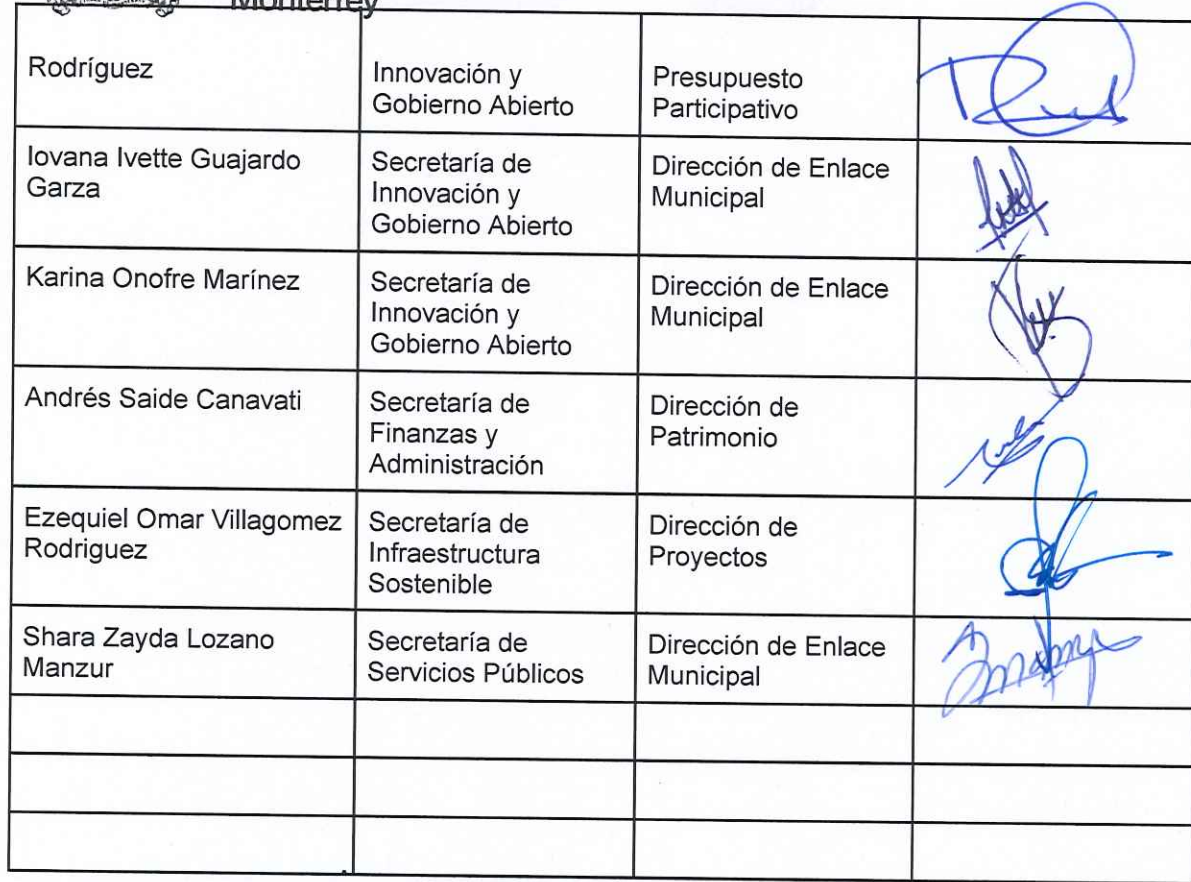 Monterrey
Rodríguez
Innovación y
Gobierno Abierto
Presupuesto
Participativo
Iovana Ivette Guajardo
Garza
Secretaría de
Innovación y
Gobierno Abierto
Dirección de Enlace
Municipal
Karina Onofre Marínez
Secretaría de
Innovación y
Gobierno Abierto
Dirección de Enlace
Municipal
Andrés Saide Canavati
Secretaría de
Finanzas y
Administración
Dirección de
Patrimonio
Ezequiel Omar Villagomez
Rodriguez
Secretaría de
Infraestructura
Sostenible
Dirección de
Proyectos
Shara Zayda Lozano
Manzur
Secretaría de
Servicios Públicos
Dirección de Enlace
Municipal